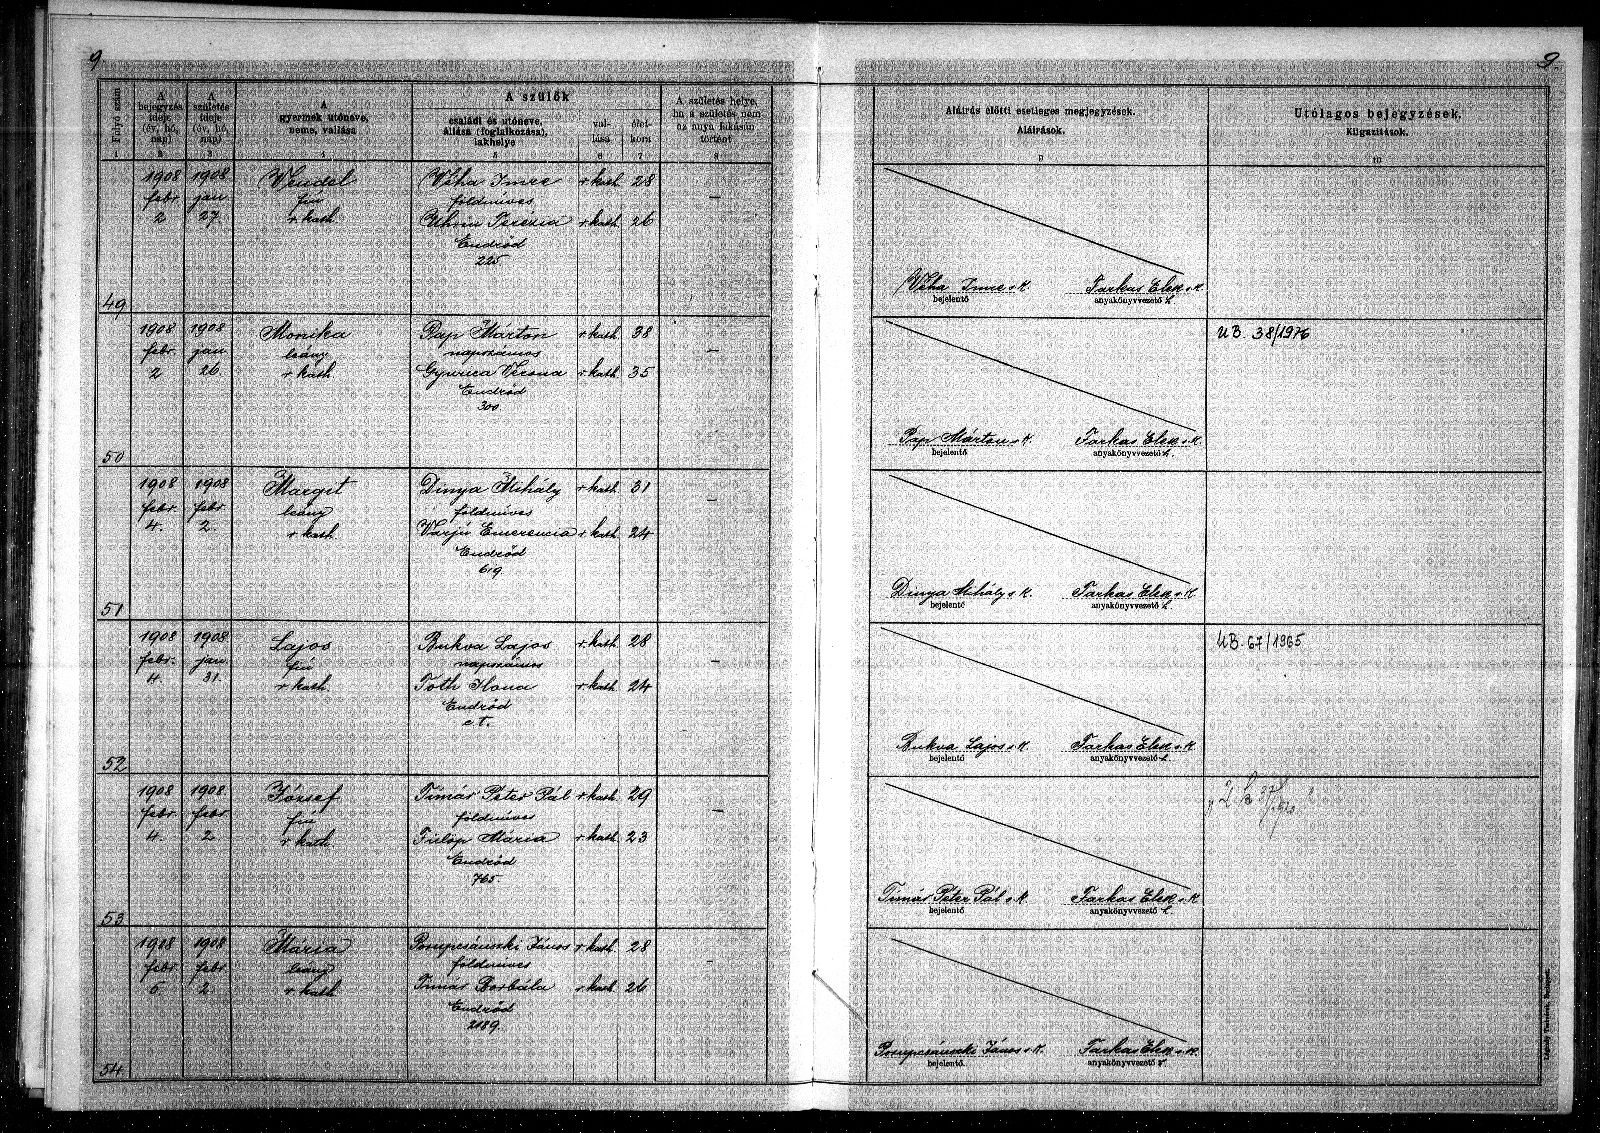 9
9
Folyó szám
A bejegyzés ideje (év, hó, nap)
A születés ideje (év, hó, nap)
A gyermek utóneve, neme, vallása
A szülők
családi és utóneve, állása (foglalkozása), lakhelye
vallása
életkora
A születés helye, ha a születés nem az anya lakásán történt
Aláírás előtti esetleges megjegyzések.
Aláírások.
Utólagos bejegyzések.
Kiigazítások.
1 2 3 4 5 6 7 8 9 10
1908 1908 Vendel Véha Imre r kath. 28
febr. jan. fiú földmíves —
2 27. r kath. Uhrin Terézia r kath. 26
Endrőd
225
49
Véha Imre s. k. Farkas Elek s. k.
bejelentő anyakönyvvezető h.
1908 1908 Monika Pap Márton r kath. 38
febr. jan. leány napszámos —
2 26 r kath. Gyuricza Verona r kath. 35
Endrőd
300
50
Pap Márton s. k. Farkas Elek s. k.
bejelentő anyakönyvvezető h.
UB. 38/1976
1908 1908 Margit Dinya Mihály r kath. 31
febr. febr. leány földmíves —
4. 2. r kath. Varjú Emerencia r kath. 24
Endrőd
619.
51
Dinya Mihály s. k. Farkas Elek s. k.
bejelentő anyakönyvvezető h.
1908 1908 Lajos Bukva Lajos r kath. 28
febr. jan. fiú napszámos —
4. 31. r kath. Tóth Ilona r kath. 24
Endrőd
c. t.
52
Bukva Lajos s. k. Farkas Elek s. k.
bejelentő anyakönyvvezető h.
UB. 67/1965
1908 1908 József Tímár Péter Pál r kath. 29
febr. febr. fiú földmíves —
4. 2 r kath. Fülöp Mária r kath. 23
Endrőd
765.
53
Tímár Péter Pál s. k. Farkas Elek s. k.
bejelentő anyakönyvvezető h.
1908 1908 Mária Pompcsánszki János r kath. 28
febr. febr. leány földmíves —
5 2 r kath. Tímár Borbála r kath. 26
Endrőd
2189.
54
Pompcsánszki János s. k. Farkas Elek s. k.
bejelentő. anyakönyvvezető h.